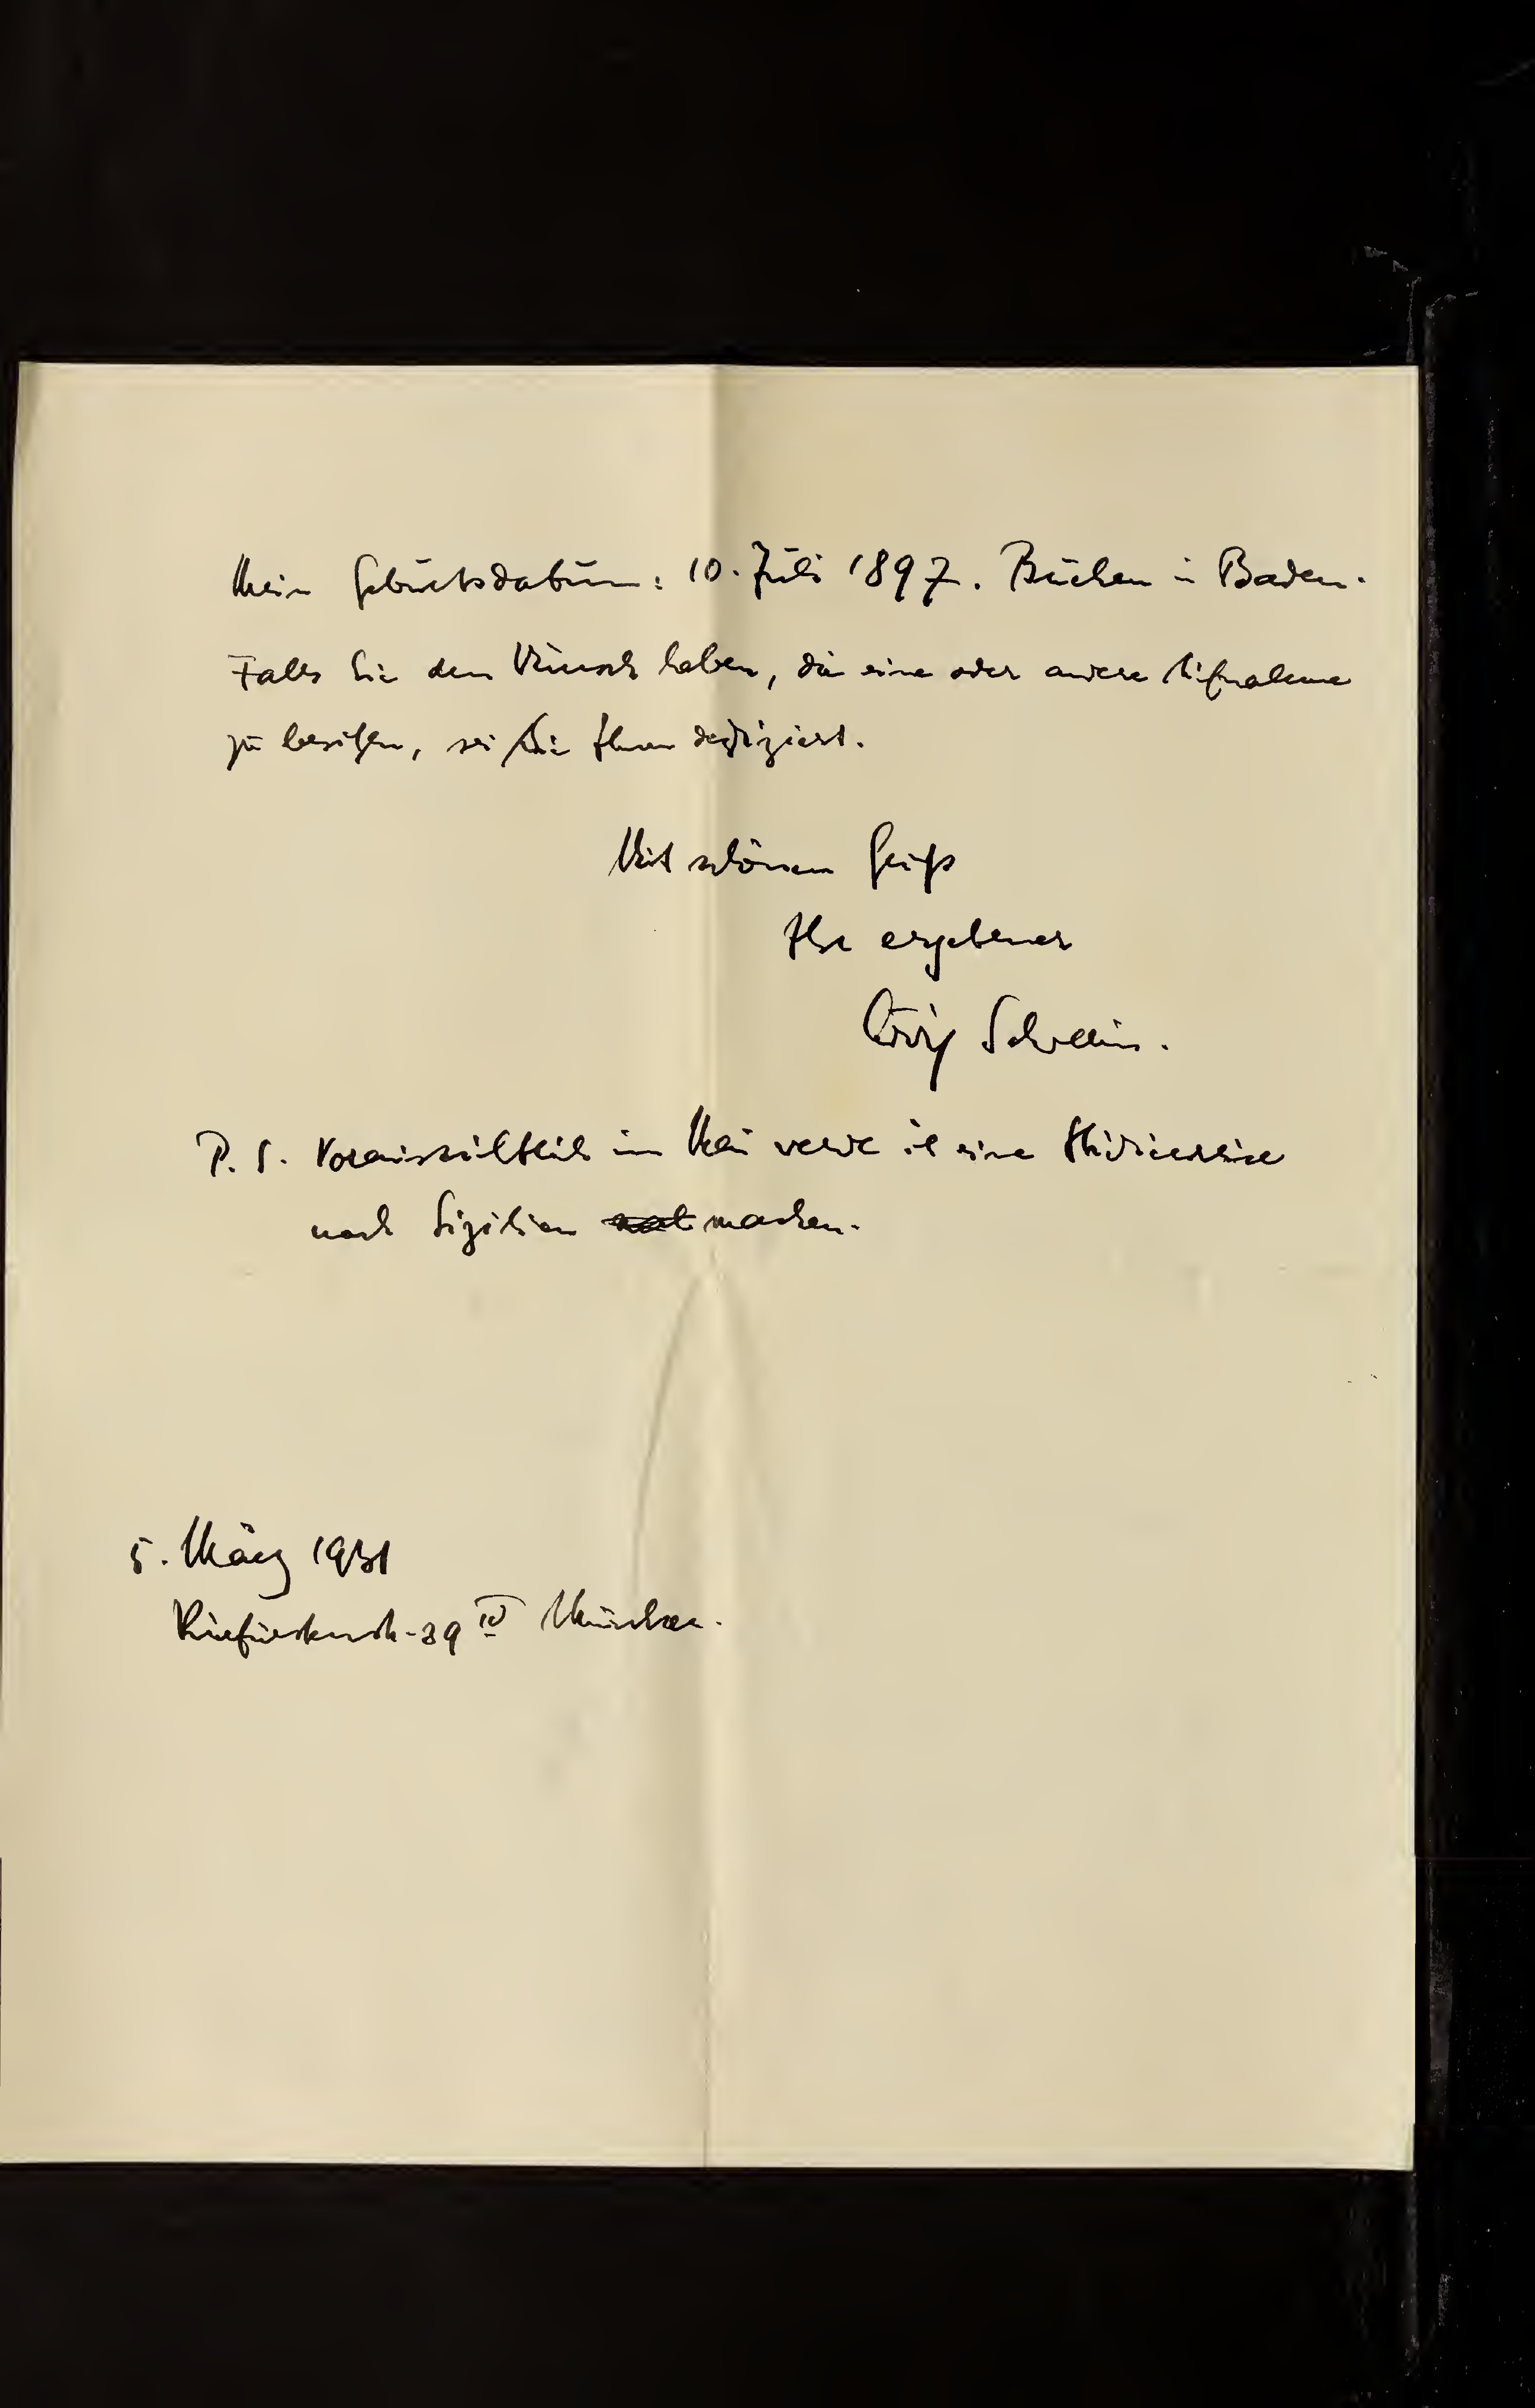 Mein Geburtsdatum: 10. Juli 1897. Buchen in Baden.
Falls Sie den Wunsch haben, die eine oder andere Aufnahme
zu besitzen, sei sie Ihnen dediziert.
Mit schönem Gruß
Ihr ergebener
Georg Scholz
P. S. Voraussichtlich im Mai werde ich eine Studienreise
nach Sizilien machen.
5. März 1931
Kurfürstenstr. 39 IV München.